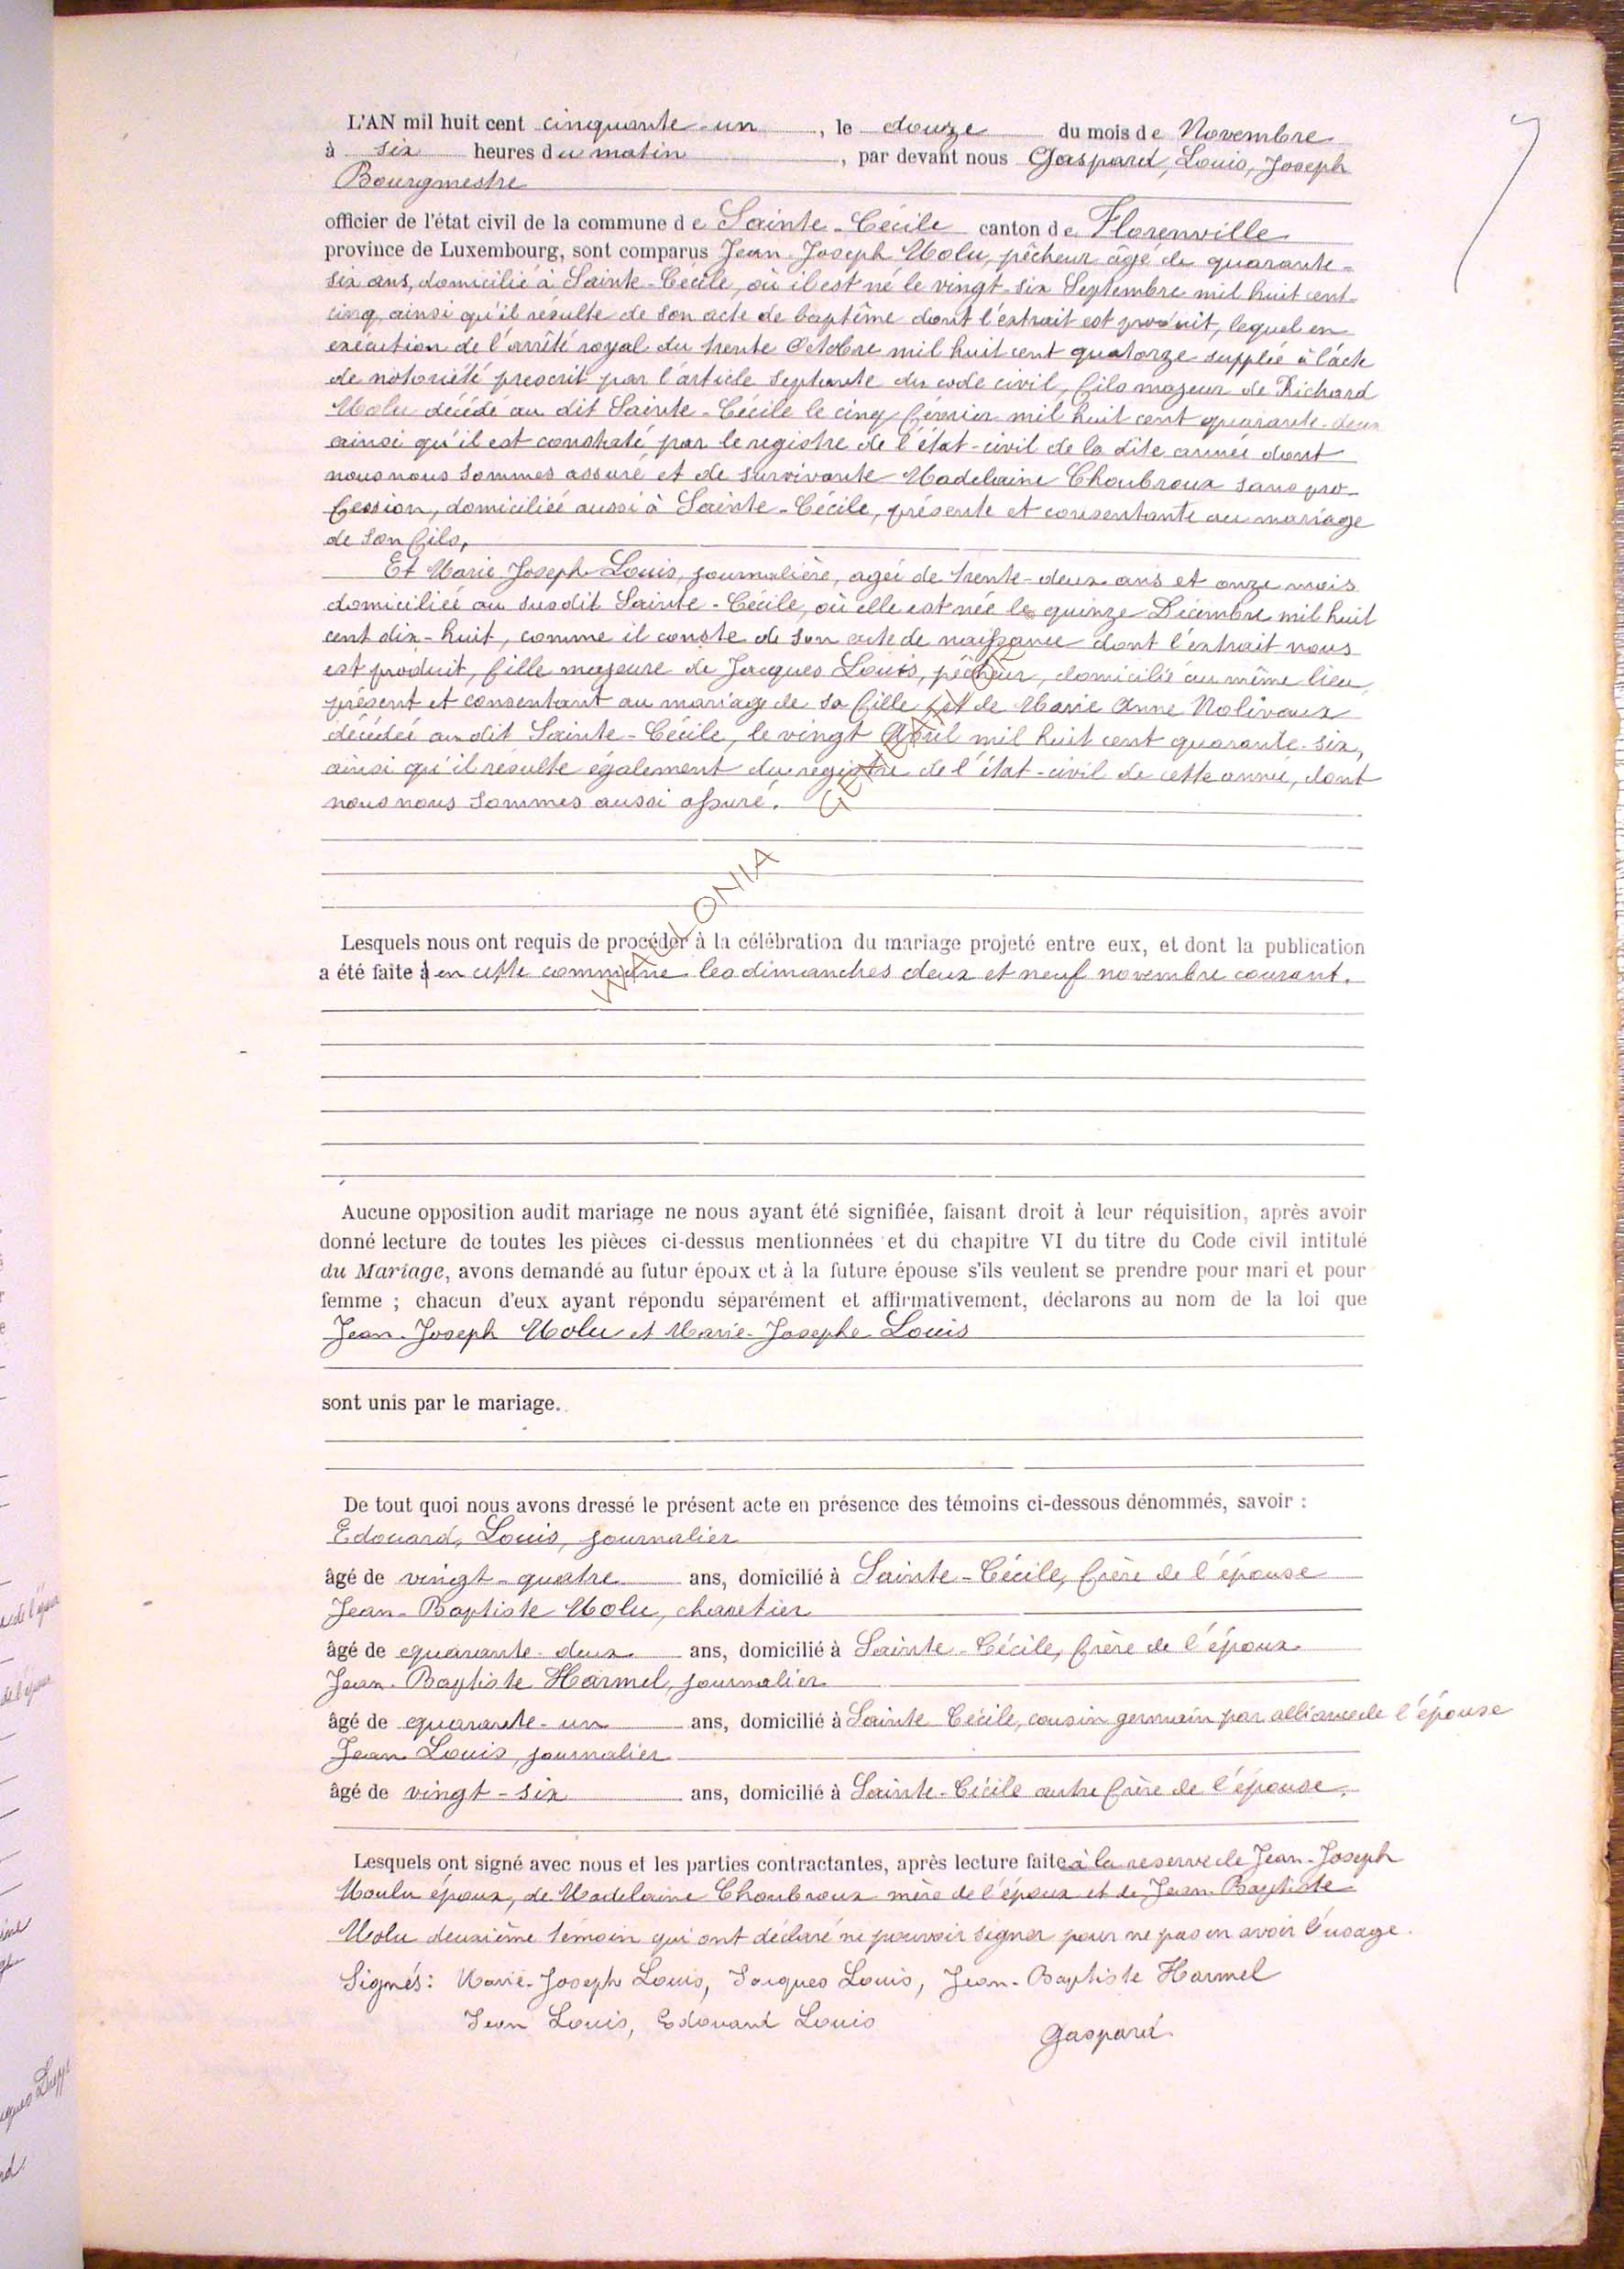 L'AN mil huit cent cinquante-un, le douze du mois de Novembre
à six heures du matin, par devant nous Gaspard, Louis, Joseph
Bourgmestre
officier de l'état civil de la commune de Sainte-Cécile canton de Florenville
province de Luxembourg, sont comparus Jean-Joseph Molu, pêcheur âgé de quarante-
six ans, domicilié à Sainte-Cécile, où il est né le vingt-six Septembre mil huit cent
cinq, ainsi qu'il résulte de son acte de baptême dont l'extrait est produit, lequel en
exécution de l'arrêté royal du trente Octobre mil huit cent quatorze supplée à l'acte
de notoriété prescrit par l'article septante du code civil, fils majeur de Richard
Molu décédé au dit Sainte-Cécile le cinq février mil huit cent quarante-deux
ainsi qu'il est constaté par le registre de l'état-civil de la dite année dont
nous nous sommes assuré et de survivante Madelaine Choubroux sans pro-
fession, domiciliée aussi à Sainte-Cécile, présente et consentante au mariage
de son fils,
Et Marie Joseph Louis, journalière, agée de trente-deux ans et onze mois
domiciliée au susdit Sainte-Cécile, où elle est née le quinze Décembre mil huit
cent dix-huit, comme il conste de son acte de naissance dont l'extrait nous
est produit, fille majeure de Jacques Louis, pêcheur, domicilié au même lieu,
présent et consentant au mariage de sa fille et de Marie Anne Nolivaux
décédée au dit Sainte-Cécile, le vingt Avril mil huit cent quarante-six,
ainsi qu'il résulte également du registre de l'état-civil de cette année, dont
nous nous sommes aussi assuré.
WALLONIA
Lesquels nous ont requis de procéder à la célébration du mariage projeté entre eux, et dont la publication
a été faite à en cette commune les dimanches deux et neuf novembre courant.
Aucune opposition audit mariage ne nous ayant été signifiée, faisant droit à leur réquisition, après avoir
donné lecture de toutes les pièces ci-dessus mentionnées et du chapitre VI du titre du Code civil intitulé
du Mariage, avons demandé au futur époux et à la future épouse s'ils veulent se prendre pour mari et pour
femme ; chacun d'eux ayant répondu séparément et affirmativement, déclarons au nom de la loi que
Jean-Joseph Molu et Marie-Josephe Louis
sont unis par le mariage.
De tout quoi nous avons dressé le présent acte en présence des témoins ci-dessous dénommés, savoir :
Edouard, Louis, journalier
âgé de vingt-quatre ans, domicilié à Sainte-Cécile, frère de l'épouse
Jean-Baptiste Molu, charetier
âgé de quarante-deux ans, domicilié à Sainte-Cécile, frère de l'époux
Jean-Baptiste Harmel, journalier
âgé de quarante-un ans, domicilié à Sainte Cécile, cousin germain par alliance de l'épouse
Jean Louis, journalier
âgé de vingt-six ans, domicilié à Sainte-Cécile autre frère de l'épouse.
Lesquels ont signé avec nous et les parties contractantes, après lecture faite à la reserve de Jean-Joseph
Moulu époux, de Madelaine Choubroux mère de l'époux et de Jean-Baptiste
Molu deuxième témoin qui ont déclaré ne pouvoir signer pour ne pas en avoir l'usage.
Signés: Marie-Joseph Louis, Jacques Louis, Jean-Baptiste Harmel
Jean Louis, Edouard Louis
Gaspard.